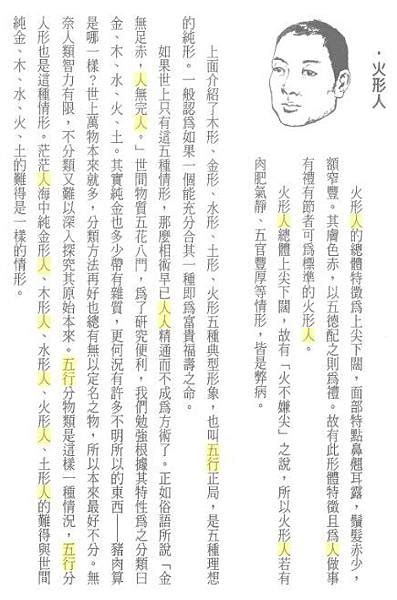 ·火形人
火形人的總體特徵爲上尖下闊，面部特點鼻翹耳露，鬚髮赤少，
額窄豐。其膚色赤，以五德配之則爲禮。故有此形體特徵且爲人做事
有禮有節者可爲標準的火形人。
火形人總體上尖下闊，故有「火不嫌尖」之說，所以火形人若有
肉肥氣靜、五官豐厚等情形，皆是弊病。
上面介紹了木形、金形、水形、土形、火形五種典型形象，也叫五行正局，是五種理想
的純形。一般認爲如果一個能充分合其一種即爲富貴福壽之命。
如果世上只有這五種情形，那麼相術早已人人精通而不成爲方術了。正如俗語所說「金
無足赤，人無完人。」世間物質五花八門，爲了研究便利，我們勉強根據其特性爲之分類曰
金、木、水、火、土。其實純金也多少帶有雜質，更何況有許多不明所以的東西——豬肉算
是哪一樣？世上萬物本來就多，分類方法再好也總有無以定名之物，所以本來最好不分。無
奈人類智力有限，不分類又難以深入探究其原始本來。五行分物類是這樣一種情況，五行分
人形也是這種情形。茫茫人海中純金形人、木形人、水形人、火形人、土形人的難得與世間
純金、木、水、火、土的難得是一樣的情形。